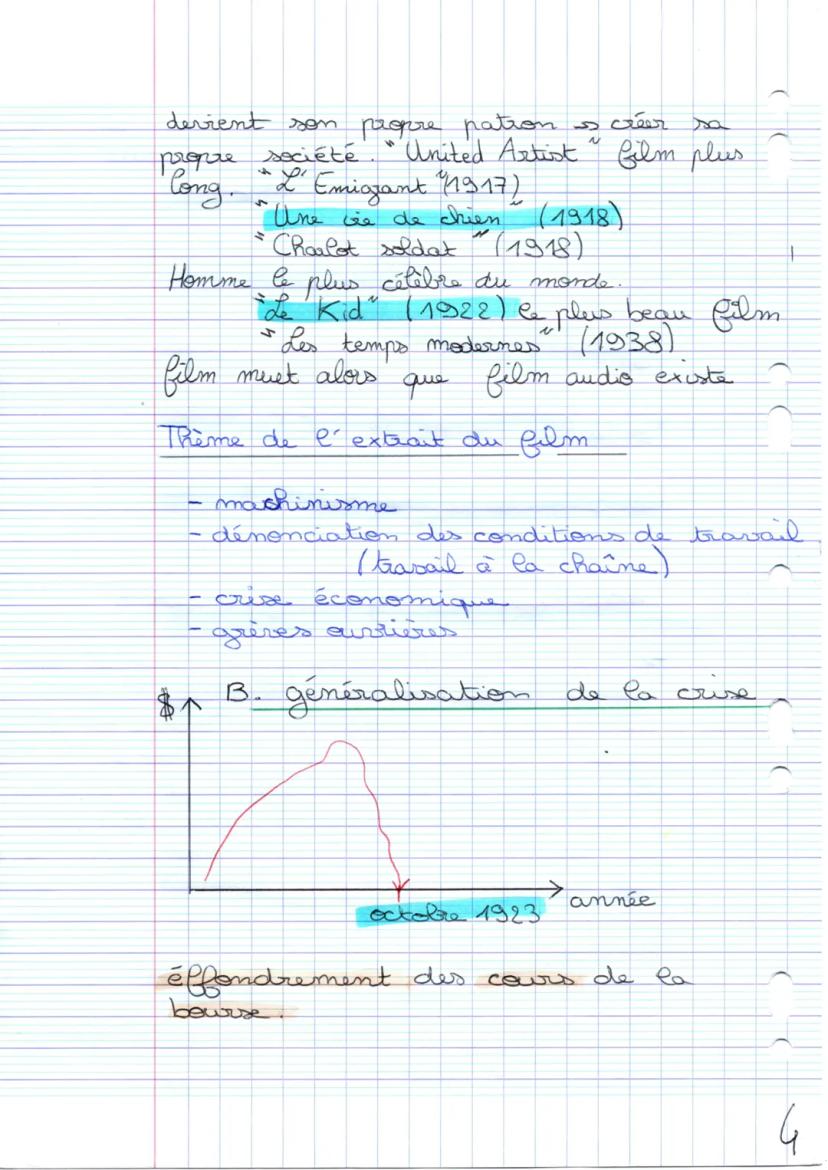 devient son propre patron => créer sa
propre société. "United Artist" film plus
long. "L'Emigrant" (1917)
"Une vie de chien" (1918)
"Charlot soldat" (1918)
Homme le plus célèbre du monde.
"Le Kid" (1922) le plus beau film
"Les temps modernes" (1938)
film muet alors que film audio existe
Thème de l'extrait du film
- machinisme
- dénonciation des conditions de travail
(travail à la chaîne)
- crise économique
- grèves ouvrières
B. généralisation de la crise
$
année
octobre 1923
éffondrement des cours de la
bourse.
4